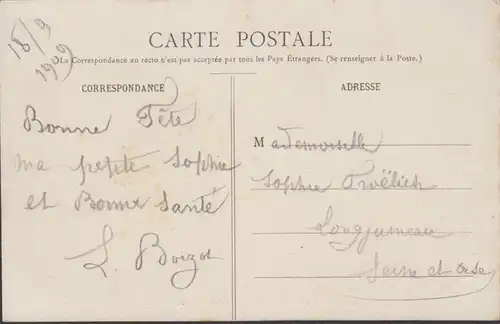 18/9
1909
CARTE POSTALE
La Correspondance au recto n'est pas acceptée par tous les Pays Étrangers. (Se renseigner à la Poste.)
CORRESPONDANCE
Bonne Fête
ma petite Sophie
et Bonne Santé
L. Boizot
ADRESSE
Mademoiselle
Sophie
Longjumeau
Seine et Oise